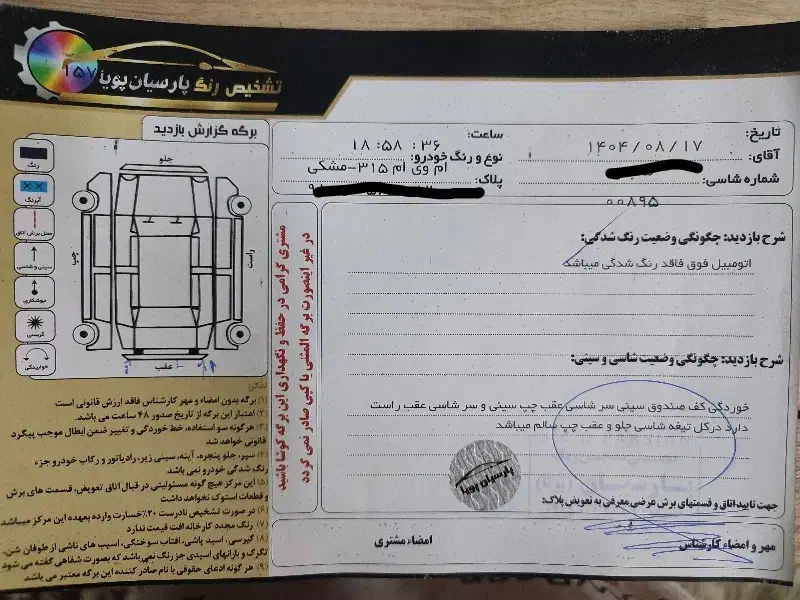 ۱۵۷
تشخیص رنگ پارسیان پویا
برگه گزارش بازدید
ساعت: ۱۸:۵۸:۳۶
نوع و رنگ خودرو: ام وی ام ۳۱۵-مشکی
پلاک:
تاریخ: ۱۴۰۴/۰۸/۱۷
آقای:
شماره شاسی: ۰۰۸۹۵
رنگ
آبرنگ
محل برش اتاق
سینی و شاسی
جوشکاری
گریسی
خوابیدگی
جلو
چپ
راست
عقب
مشتری گرامی در حفظ و نگهداری این برگه کوشا باشید
در غیر اینصورت برگه المثنی یا کپی صادر نمی گردد
شرح بازدید: چگونگی وضعیت رنگ شدگی:
اتومبیل فوق فاقد رنگ شدگی میباشد
شرح بازدید: چگونگی وضعیت شاسی و سینی:
خوردگی کف صندوق سینی سر شاسی عقب چپ سینی و سر شاسی عقب راست
دارد درکل تیغه شاسی جلو و عقب چپ سالم میباشد
پارسیان پویا
جهت تایید اتاق و قسمتهای برش عرضی معرفی به تعویض پلاک:
مهر و امضاء کارشناس
امضاء مشتری
تذکر:
۱) برگه بدون امضاء و مهر کارشناس فاقد ارزش قانونی است
۲) اعتبار این برگه از تاریخ صدور ۴۸ ساعت می باشد.
۳) هرگونه سو استفاده، خط خوردگی و تغییر ضمن ابطال موجب پیگرد
قانونی خواهد شد
۴) سپر، جلو پنجره، آینه، سینی زیر، رادیاتور و رکاب خودرو جزء
رنگ شدگی خودرو نمی باشد
۵) این مرکز هیچ گونه مسئولیتی در قبال اتاق تعویض، قسمت های برش
و قطعات استوک نخواهد داشت
۶) در صورت تشخیص نادرست ۲۰٪ خسارت وارده بعهده این مرکز میباشد
۷) رنگ مجدد کارخانه افت قیمت ندارد
۸) گریسی، اسید پاشی، افتاب سوختگی، اسیب های ناشی از طوفان شن،
تگرگ و بارانهای اسیدی جز رنگ نمی باشد که بصورت شفاهی گفته می شود
۹) هر گونه ادعای حقوقی با نام صادر کننده این برگه معتبر می باشد